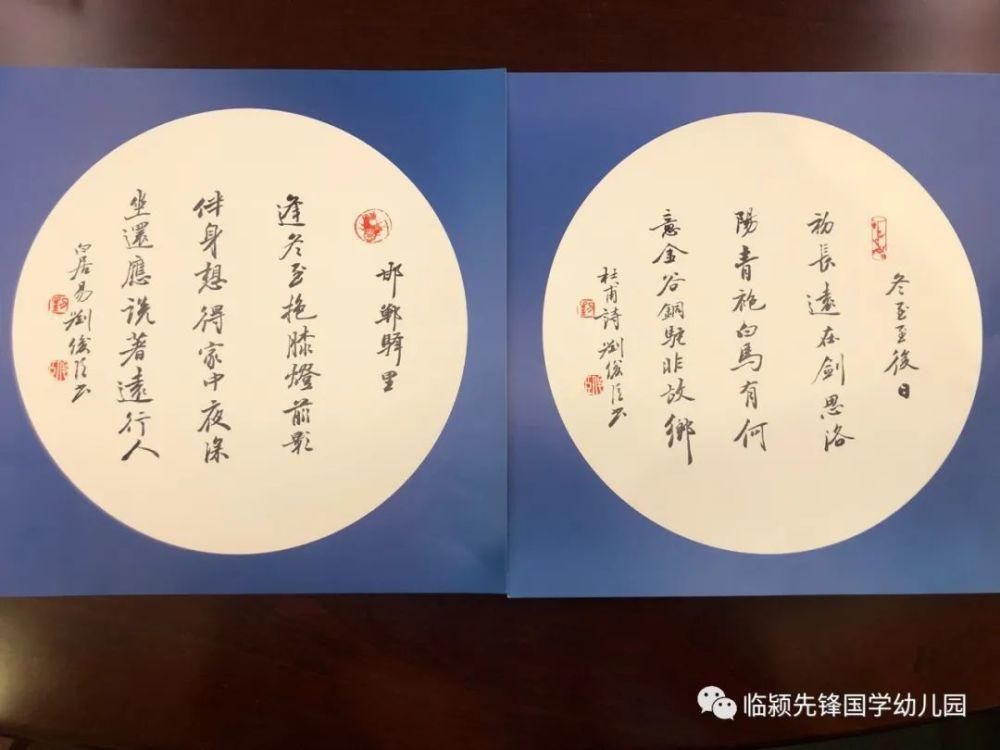 邯鄲驛里
逢冬至抱膝燈前影
伴身想得家中夜深
坐還應說著遠行人
白居易 劉 书
冬至至後日
初長遠在劍思洛
陽青袍白馬有何
意金谷銅駝非故鄉
杜甫詩 劉 书
临颍先锋国学幼儿园